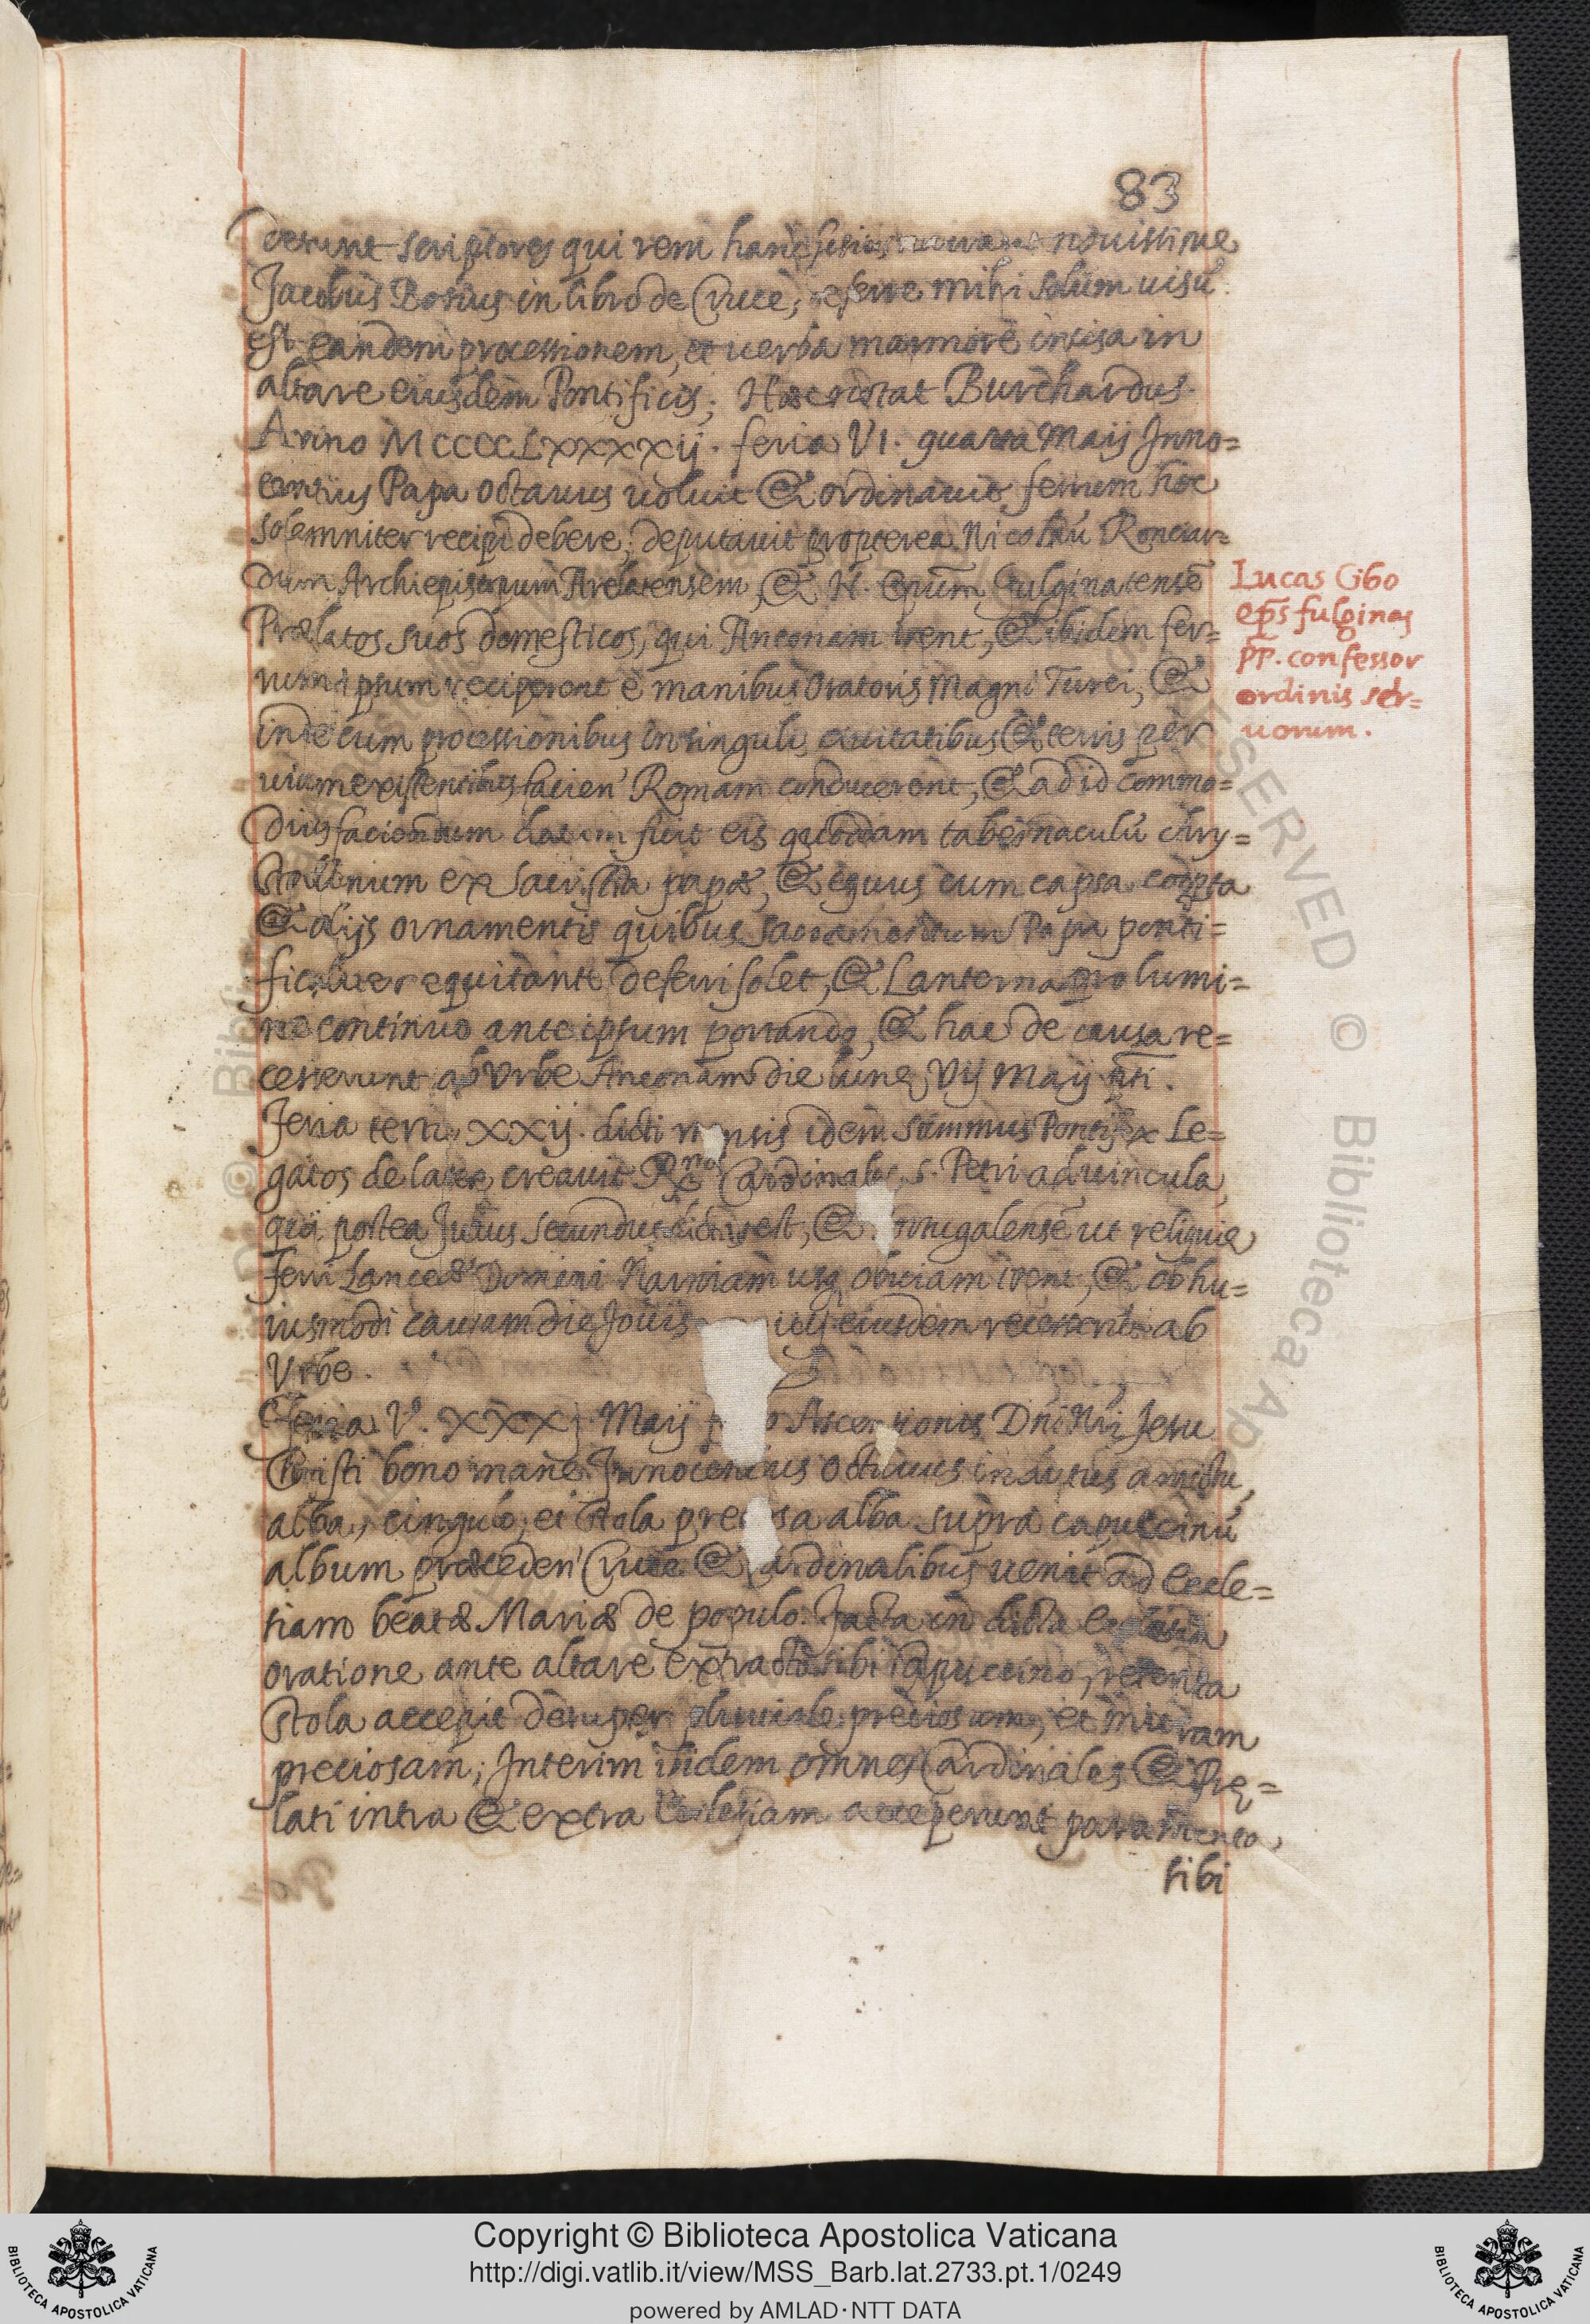 83
derunt scriptores qui rem hanc fusius novissime
Jacobus Bosius in libro de Cruce; referre mihi solum uisū
est eandem processionem, et uerba marmore incisa in
altare eiusdem Pontificis; Haec notat Burchardus.
Anno MCCCCLXXXXij. feria VI. quarta Maij Inno=
centius Papa octauus uoluit & ordinauit ferrum hoc
solemniter recipi debere; deputauit propterea Nicolaū Ronciar=
dum Archiepiscopum Arelatensem, & N. Epūm fulginatensē
Praelatos suos domesticos, qui Anconam irent, & ibidem fer=
rum ipsum reciperent è manibus Oratoris Magni Turci, &
inde cum processionibus in singulis ciuitatibus & terris per
uiam existentibus facien' Romam conducerent, & ad id commo=
dius faciendum datum fuit eis quoddam tabernaculū chry=
stallinum ex sacristia papae, & equus cum capsa coopta
& alijs ornamentis quibus sacramentum Papa ponti=
ficaliter equitante deferri solet, & Lanterna pro lumi=
ne continuo ante ipsum portando, & hac de causa re=
cesserunt ab Vrbe Anconam die lune Vij Maij
Feria tertia XXij. dicti nsis idem summus Pontifex Le=
gatos de latere creauit Rmos Cardinales S. Petri ad uincula
qui postea Julius secundus dictus est, & ortugalensē ut reliquie
ferri Lanceae Domini Narniam usq obuiam irent, & ob hu=
iusmodi causam die Jouis iiij eiusdem recesserunt ab
Vrbe.
Feria V. XXXj. Maij Ascensionis Dnī Nrī Jesu
Christi bono mane Innocentius octauus indutus amictu,
alba, cingulo, et stola pre sa alba supra capuccinū
album praeceden' Cruce & ardinalibus uenit ad Eccle=
siam beatae Mariae de populo. Facta in dicta Ecclesia
oratione ante altare extracto sibi Capuccino, retenta
stola accepit desuper pluuiale preciosum, et mitram
preciosam; Interim ibidem omnes Cardinales & Prę=
lati intra & extra Ecclesiam acceperunt paramenta
sibi
Lucas Cibo
ep̄s fulginas
PP. confessor
ordinis ser=
uorum.
Copyright © Biblioteca Apostolica Vaticana
http://digi.vatlib.it/view/MSS_Barb.lat.2733.pt.1/0249
powered by AMLAD·NTT DATA
BIBLIOTECA APOSTOLICA VATICANA
BIBLIOTECA APOSTOLICA VATICANA